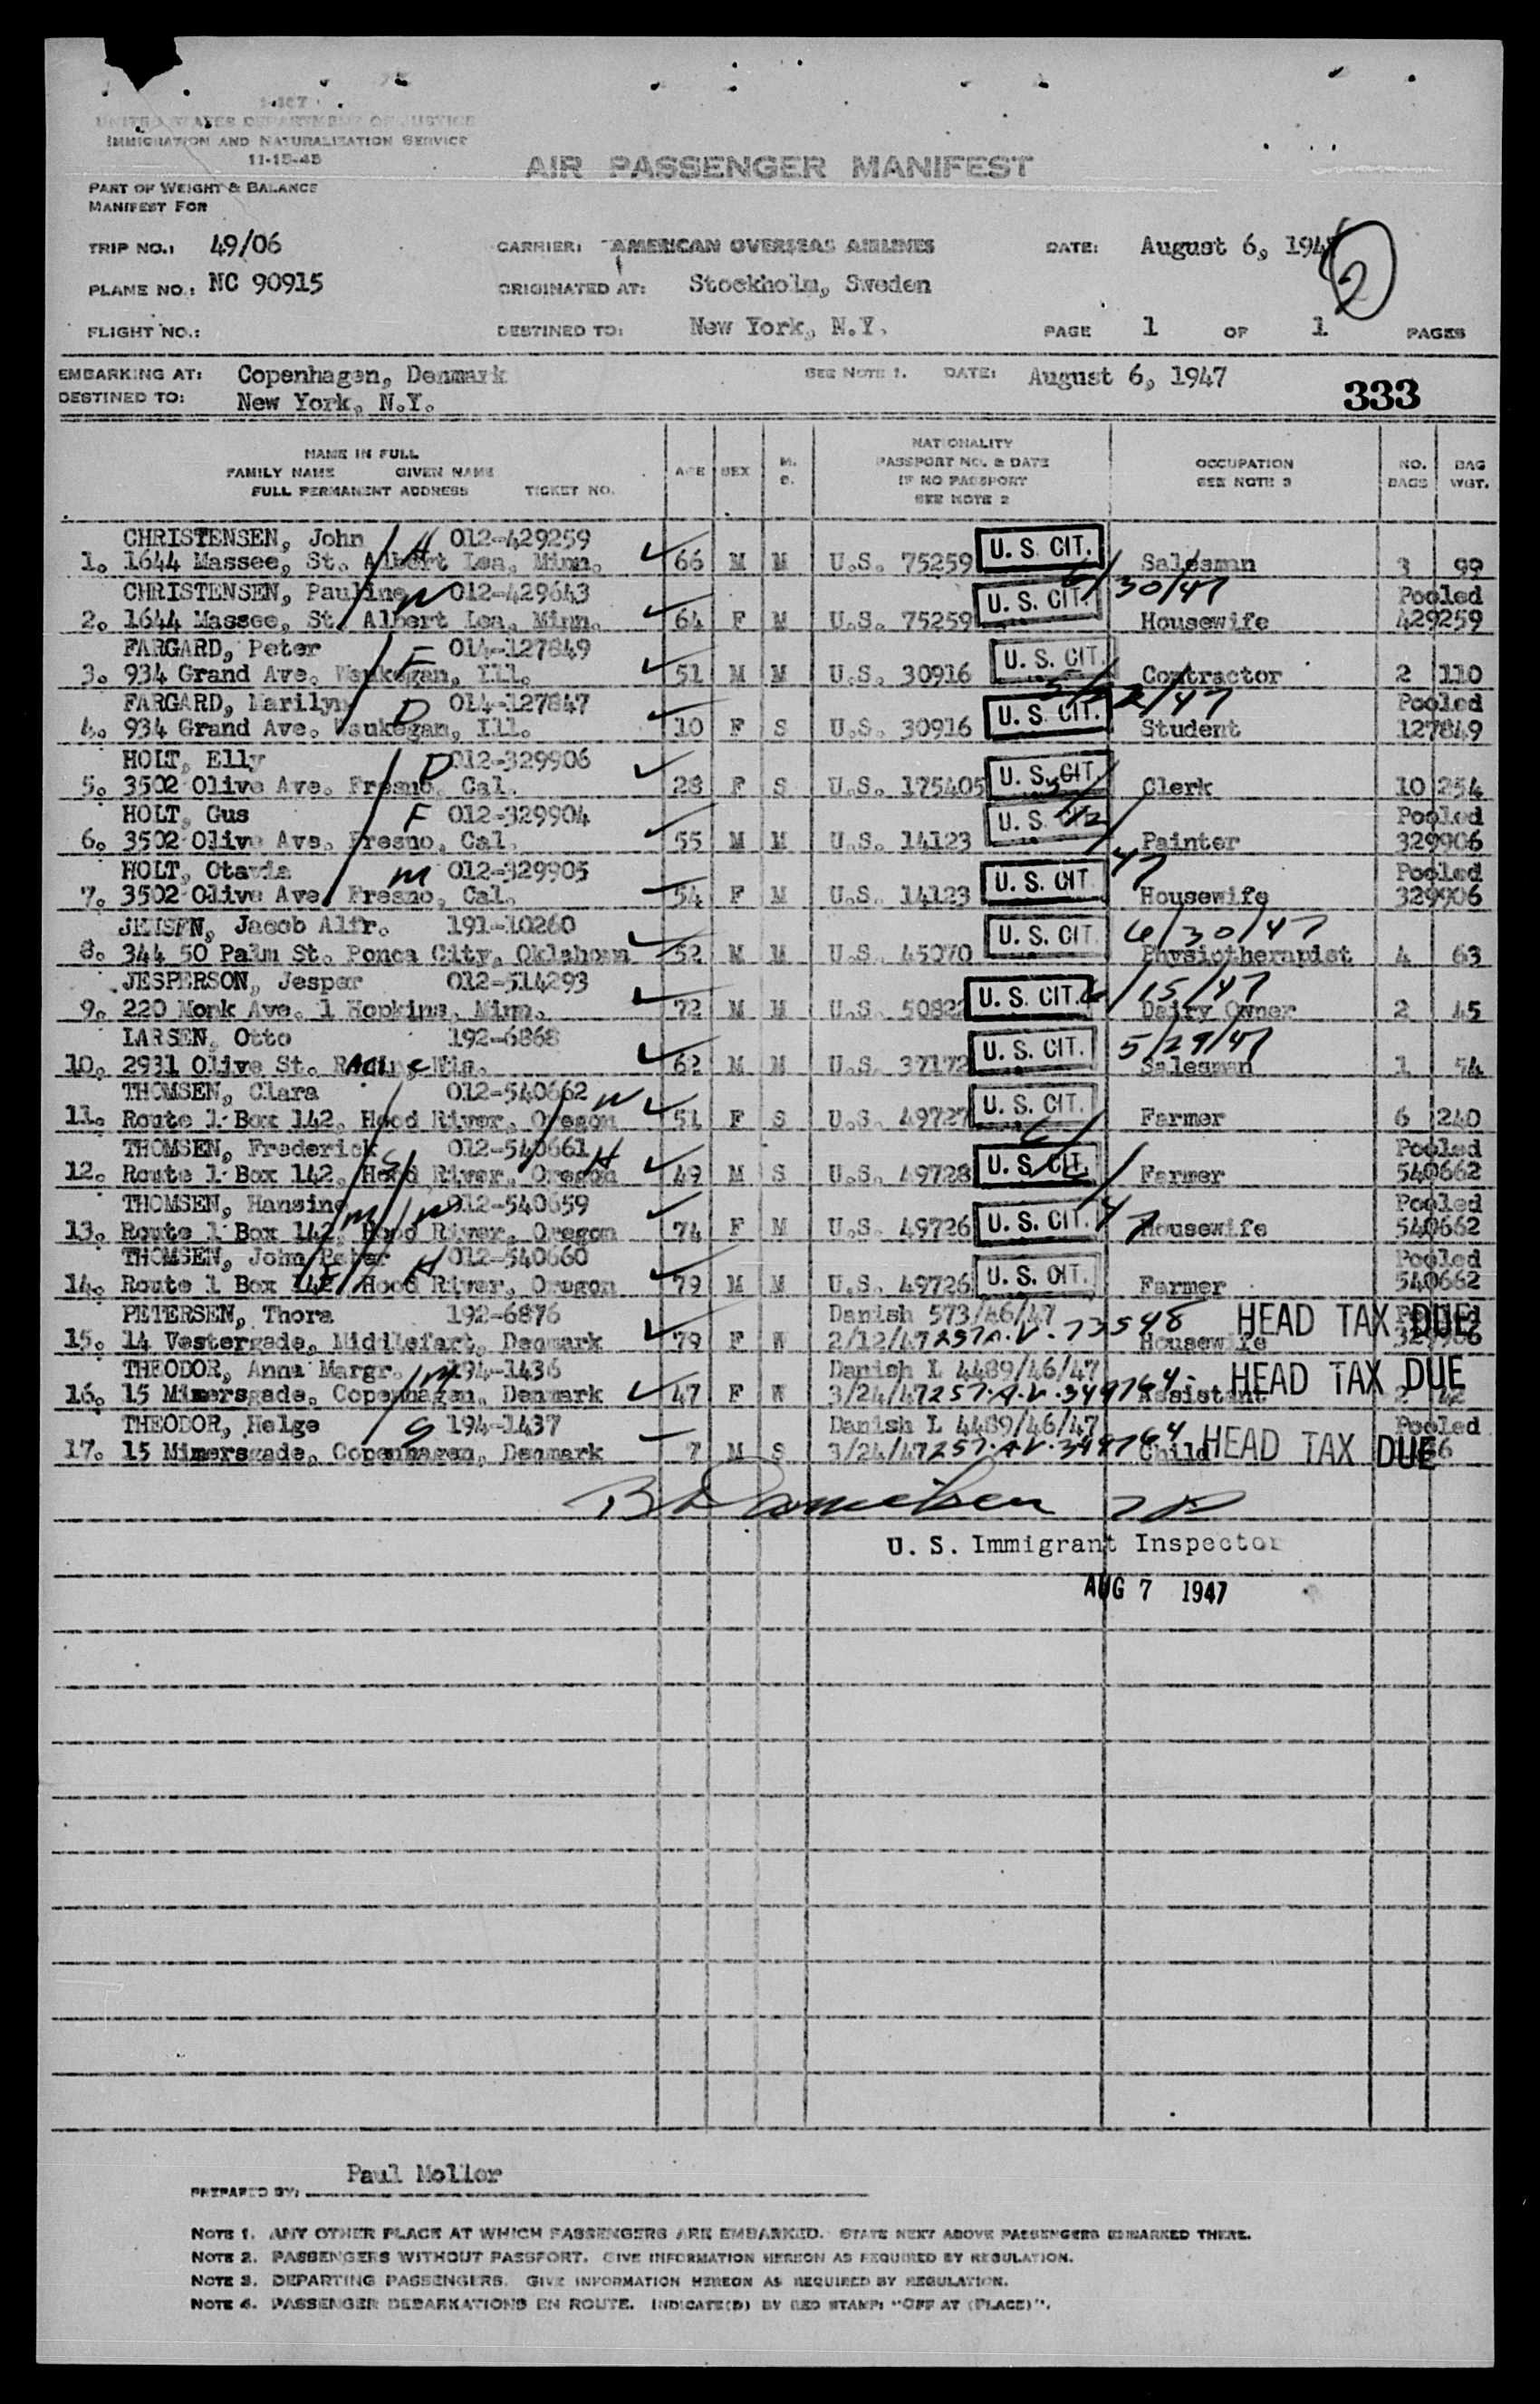 I-407
UNITED STATES DEPARTMENT OF JUSTICE
IMMIGRATION AND NATURALIZATION SERVICE
11-15-45
AIR PASSENGER MANIFEST
PART OF WEIGHT & BALANCE
MANIFEST FOR
TRIP NO.: 49/06 CARRIER: AMERICAN OVERSEAS AIRLINES DATE: August 6, 194
2
PLANE NO.: NC 90915 ORIGINATED AT: Stockholm, Sweden
FLIGHT NO.: DESTINED TO: New York, N.Y. PAGE 1 OF 1 PAGES
EMBARKING AT: Copenhagen, Denmark SEE NOTE 1. DATE: August 6, 1947
DESTINED TO: New York, N.Y. 333
NAME IN FULL
FAMILY NAME GIVEN NAME
FULL PERMANENT ADDRESS TICKET NO.
AGE SEX M. S.
NATIONALITY
PASSPORT NO. & DATE
IF NO PASSPORT
SEE NOTE 2
OCCUPATION
SEE NOTE 3
NO. BAGS
BAG WGT.
CHRISTENSEN, John H 012-429259
1. 1644 Massee, St. Albert Lea, Minn. 66 M M U.S. 75259 U. S. CIT. Salesman 3 99
6/30/47
CHRISTENSEN, Pauline W 012-429643 Pooled
2. 1644 Massee, St. Albert Lea, Minn. 64 F M U.S. 75259 U. S. CIT. Housewife 429259
FARGARD, Peter F 014-127849
3. 934 Grand Ave. Waukegan, Ill. 51 M M U.S. 30916 U. S. CIT. Contractor 2 110
FARGARD, Marilyn D 014-127847 Pooled
4. 934 Grand Ave. Waukegan, Ill. 10 F S U.S. 30916 U. S. CIT. Student 127849
HOLT, Elly D 012-329906
5. 3502 Olive Ave. Fresno, Cal. 28 F S U.S. 175405 U. S. CIT. Clerk 10 254
HOLT, Gus F 012-329904 Pooled
6. 3502 Olive Ave. Fresno, Cal. 55 M M U.S. 14123 U. S. Painter 329906
HOLT, Otavia M 012-329905 47 Pooled
7. 3502 Olive Ave. Fresno, Cal. 54 F M U.S. 14123 U. S. CIT. Housewife 329906
JENSEN, Jacob Alfr. 191-10260 6/30/47
8. 344 50 Palm St. Ponca City, Oklahoma 52 M M U.S. 45070 U. S. CIT. Physiotherapist 4 63
JESPERSON, Jesper 012-514293 6/15/47
9. 220 Monk Ave. 1 Hopkins, Minn. 72 M M U.S. 50822 U. S. CIT. Dairy Owner 2 45
LARSEN, Otto 192-6868 5/29/47
10. 2931 Olive St. Racine Wis. 62 M M U.S. 37172 U. S. CIT. Salesman 1 54
THOMSEN, Clara 012-540662 W
11. Route 1 Box 142, Hood River, Oregon 51 F S U.S. 49727 U. S. CIT. Farmer 6 240
THOMSEN, Frederick S 012-540661 H Pooled
12. Route 1 Box 142, Hood River, Oregon 49 M S U.S. 49728 U. S. CIT. Farmer 540662
THOMSEN, Hansine M W 012-540659 47 Pooled
13. Route 1 Box 142, Hood River, Oregon 74 F M U.S. 49726 U. S. CIT. Housewife 540662
THOMSEN, John Peter F H 012-540660 Pooled
14. Route 1 Box 142, Hood River, Oregon 79 M M U.S. 49726 U. S. CIT. Farmer 540662
PETERSEN, Thora 192-6876 Danish 573/46/47 HEAD TAX DUE
15. 14 Vestergade, Middlefart, Denmark 79 F W 2/12/47 257 A.V. 73548 Housewife
THEODOR, Anna Margr. M 194-1436 Danish L 4489/46/47 HEAD TAX DUE
16. 15 Mimersgade, Copenhagen, Denmark 47 F W 3/24/47 257.A.V.349764 Assistant 2 42
THEODOR, Helge S 194-1437 Danish L 4489/46/47 Pooled
17. 15 Mimersgade, Copenhagen, Denmark 7 M S 3/24/47 257.A.V.349764 Child HEAD TAX DUE
B Danielsen
U. S. Immigrant Inspector
AUG 7 1947
Paul Moller
PREPARED BY:
NOTE 1. ANY OTHER PLACE AT WHICH PASSENGERS ARE EMBARKED. STATE NEXT ABOVE PASSENGERS EMBARKED THERE.
NOTE 2. PASSENGERS WITHOUT PASSPORT. GIVE INFORMATION HEREON AS REQUIRED BY REGULATION.
NOTE 3. DEPARTING PASSENGERS. GIVE INFORMATION HEREON AS REQUIRED BY REGULATION.
NOTE 4. PASSENGER DEBARKATIONS EN ROUTE. INDICATE(D) BY RED STAMP: "OFF AT (PLACE)".